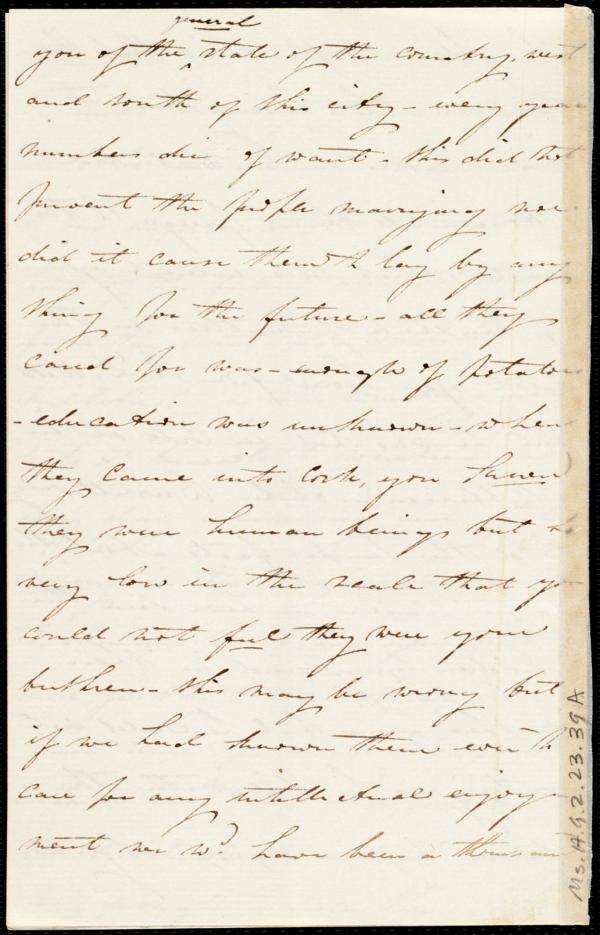 general
you of the ^ state of the country, west
and south of this city - every year
numbers die of want - this did not
prevent the people marrying nor
did it cause them to lay by any
thing for the future - all they
cared for was - enough of potatoes
- education was unknown - when
they came into Cork, you knew
they were human beings but so
very low in the scale that you
could not feel they were your
brethren - this may be wrong but
if we had known them even to
care for any intellectual enjoy-
ment we wd. have been a thousand
Ms.A.9.2.23.39A